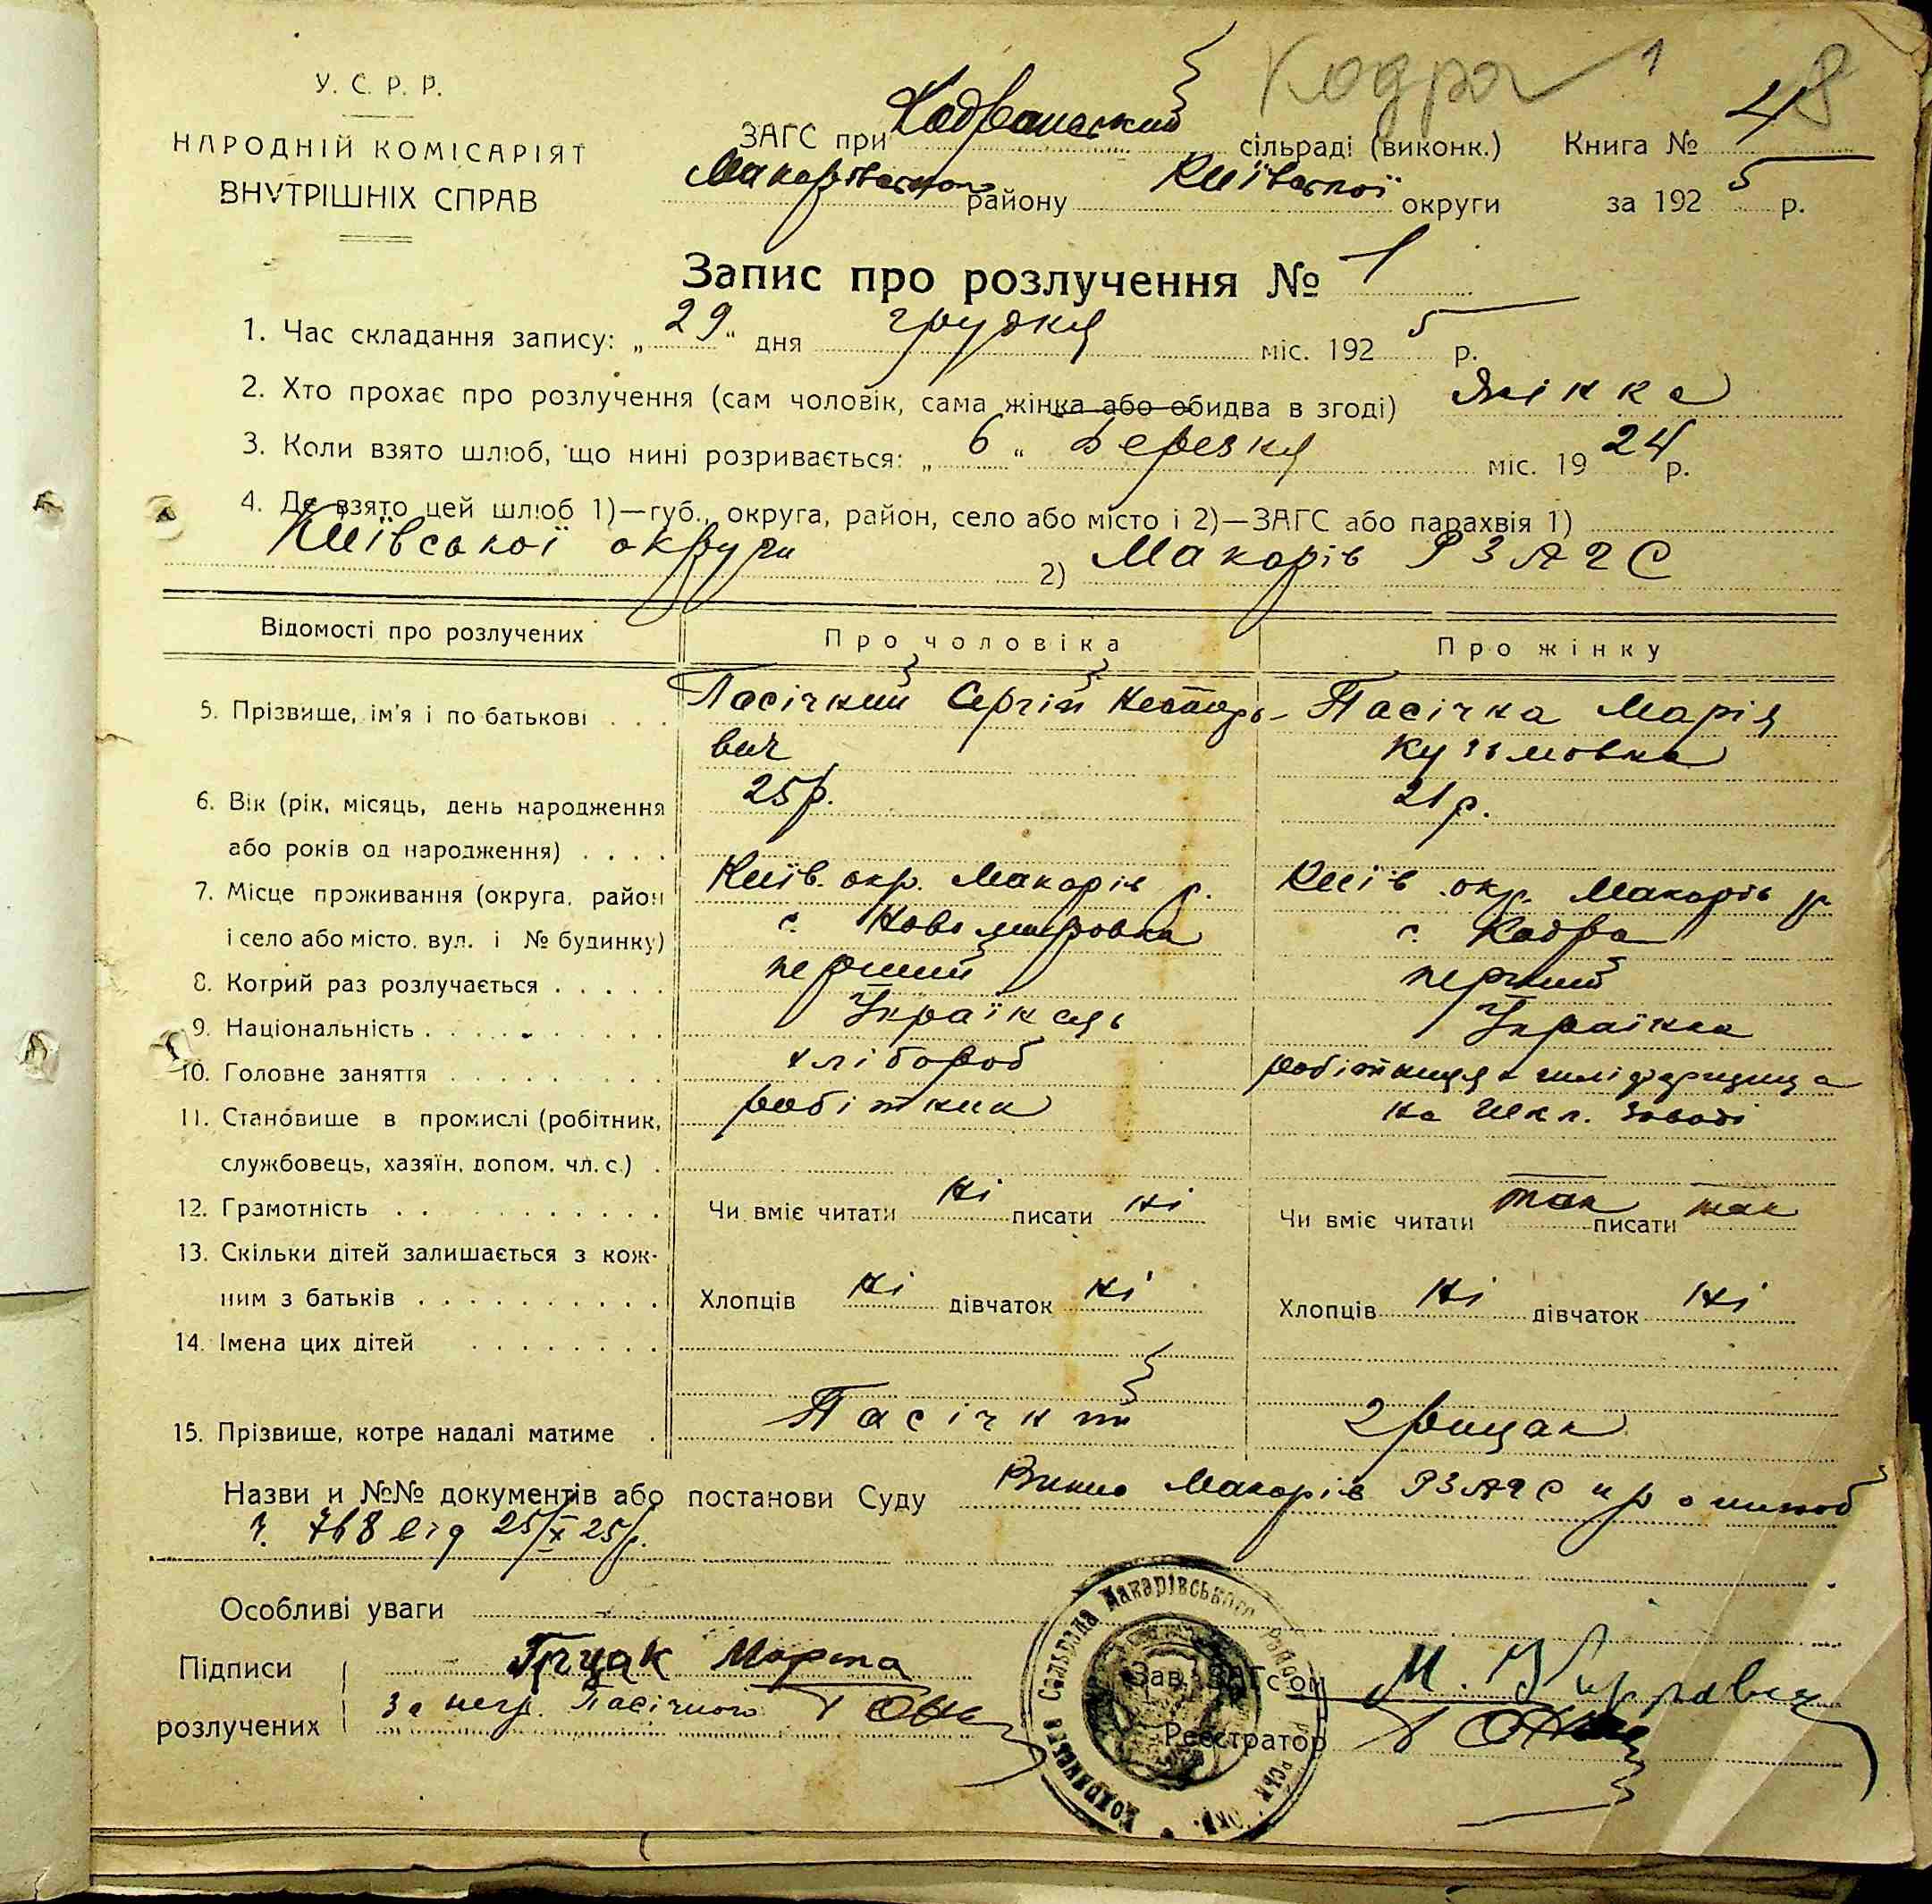 Кодра 1 8
У. С. Р. Р.
НАРОДНІЙ КОМІСАРІЯТ
ВНУТРІШНІХ СПРАВ
ЗАГС при Кодранський сільраді (виконк.) Книга № 4
Макарівського району Київської округи за 192 5 р.
Запис про розлучення № 1
1. Час складання запису: „ 29 “ дня грудня міс. 192 5 р.
2. Хто прохає про розлучення (сам чоловік, сама жінка або обидва в згоді) жінка
3. Коли взято шлюб, що нині розривається: „ 6 “ березня міс. 19 24 р.
4. Де взято цей шлюб 1)—губ., округа, район, село або місто і 2)—ЗАГС або парахвія 1)
Київської округи 2) Макарів РЗАГС
Відомості про розлучених Про чоловіка Про жінку
5. Прізвище, ім'я і по батькові . . . Пасічний Сергій Несторо- Пасічна Марія
вич Кузьмовна
6. Вік (рік, місяць, день народження 25 р. 21 р.
або років од народження) . . . .
7. Місце проживання (округа, район Київ. окр. Макарів р. Київ окр. Макарів р
і село або місто, вул. і № будинку) с. Новомировка с. Кодра
8. Котрий раз розлучається . . . . . перший перший
9. Національність . . . . . . . . . . Українець Українка
10. Головне заняття . . . . . . . . . хлібороб робітниця
11. Становище в промислі (робітник, робітник на Шкл. Заводі
службовець, хазяїн, допом. чл. с.) .
12. Грамотність . . . . . . . . . . . Чи вміє читати ні писати ні Чи вміє читати так писати так
13. Скільки дітей залишається з кож-
ним з батьків . . . . . . . . . . Хлопців ні дівчаток ні Хлопців ні дівчаток ні
14. Імена цих дітей . . . . . . . .
15. Прізвище, котре надалі матиме . Пасічний Грицак
Назви и №№ документів або постанови Суду Макарів РЗАГС про шлюб
ч. 768 від 25/IX 25 р.
Особливі уваги
Підписи Грицак Марта
розлучених за негр. Пасічного
Зав. ЗАГСом М.
Реєстратор
Кодрянська Сільрада Макарівського Району